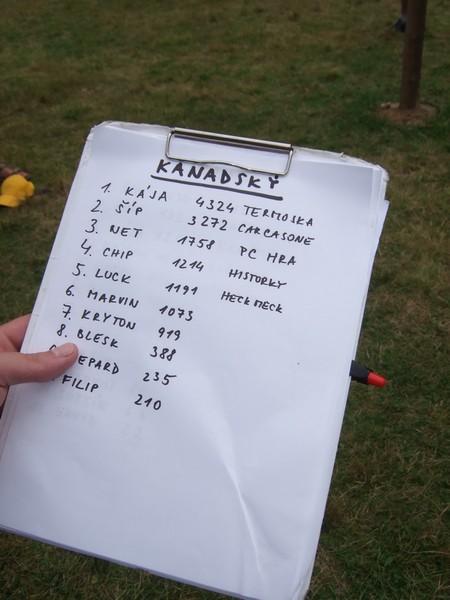 KANADSKÝ
1. KÁJA 4324 TERMOSKA
2. ŠÍP 3272 CARCASONE
3. NET 1758 PC HRA
4. CHIP 1214 HISTORKY
5. LUCK 1191 HECKMECK
6. MARVIN 1073
7. KRYTON 919
8. BLESK 388
EPARD 235
FILIP 210